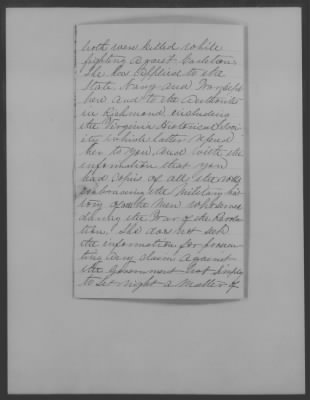 both were killed while
fighting against Carleton.
She has applied to the
State Navy and War Dept
here and to the Authorities
in Richmond including
the Virginia Historical Soc
iety which latter refered
her to you, and with the
information that you
had copies of all the rolls
embracing the Military his
tory of all the men who served
during the War of the Revolu
tion. She does not seek
the information for presen
ting any claim against
the Government but simply
to set right a matter of